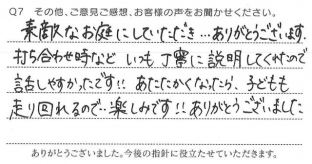 Q7 その他、ご意見ご感想、お客様の声をお聞かせください。
素敵なお庭にしていただき…ありがとうございます。
打ち合わせ時など いつも丁寧に説明してくれたので
話しやすかったです!! あたたかくなったら、子どもも
走り回れるので…楽しみです!! ありがとうございました
ありがとうございました。今後の指針に役立たせていただきます。